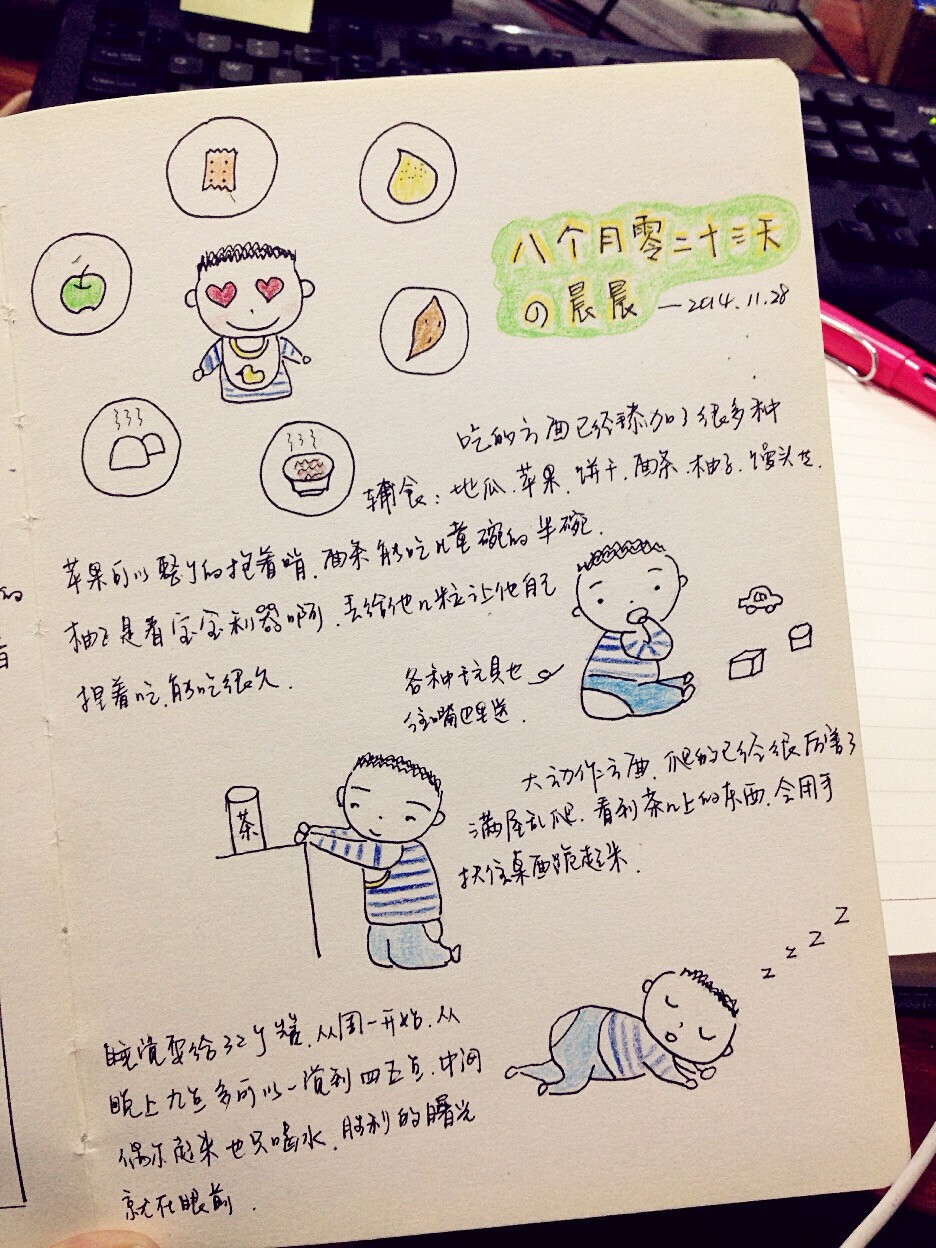 八个月零二十三天
の晨晨 —2014.11.28
吃的方面已经添加了很多种
辅食：地瓜.苹果.饼干.面条.柚子.馒头等.
苹果可以整个的抱着啃.面条能吃儿童碗的半碗.
柚子是看宝宝利器啊.丢给他几粒让他自己
捏着吃.能吃很久.
各种玩具也
往嘴巴里送.
大动作方面.爬的已经很厉害了
满屋乱爬.看到茶几上的东西.会用手
扶住桌面跪起来.
茶
z z z z
睡觉要给32个赞.从周一开始.从
晚上九点多可以一觉到四五点.中间
偶尔起来也只喝水.胜利的曙光
就在眼前.